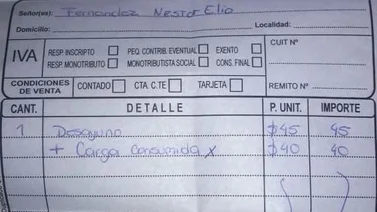 Señor(es): Fernandez Nestor Elio
Domicilio: Localidad:
IVA RESP. INSCRIPTO PEQ. CONTRIB. EVENTUAL EXENTO CUIT Nº
RESP. MONOTRIBUTO MONOTRIBUTISTA SOCIAL CONS. FINAL
CONDICIONES DE VENTA CONTADO CTA. C.TE TARJETA REMITO Nº
CANT. DETALLE P. UNIT. IMPORTE
1 Desayuno $45 45
+ Carga Consumida x $40 40